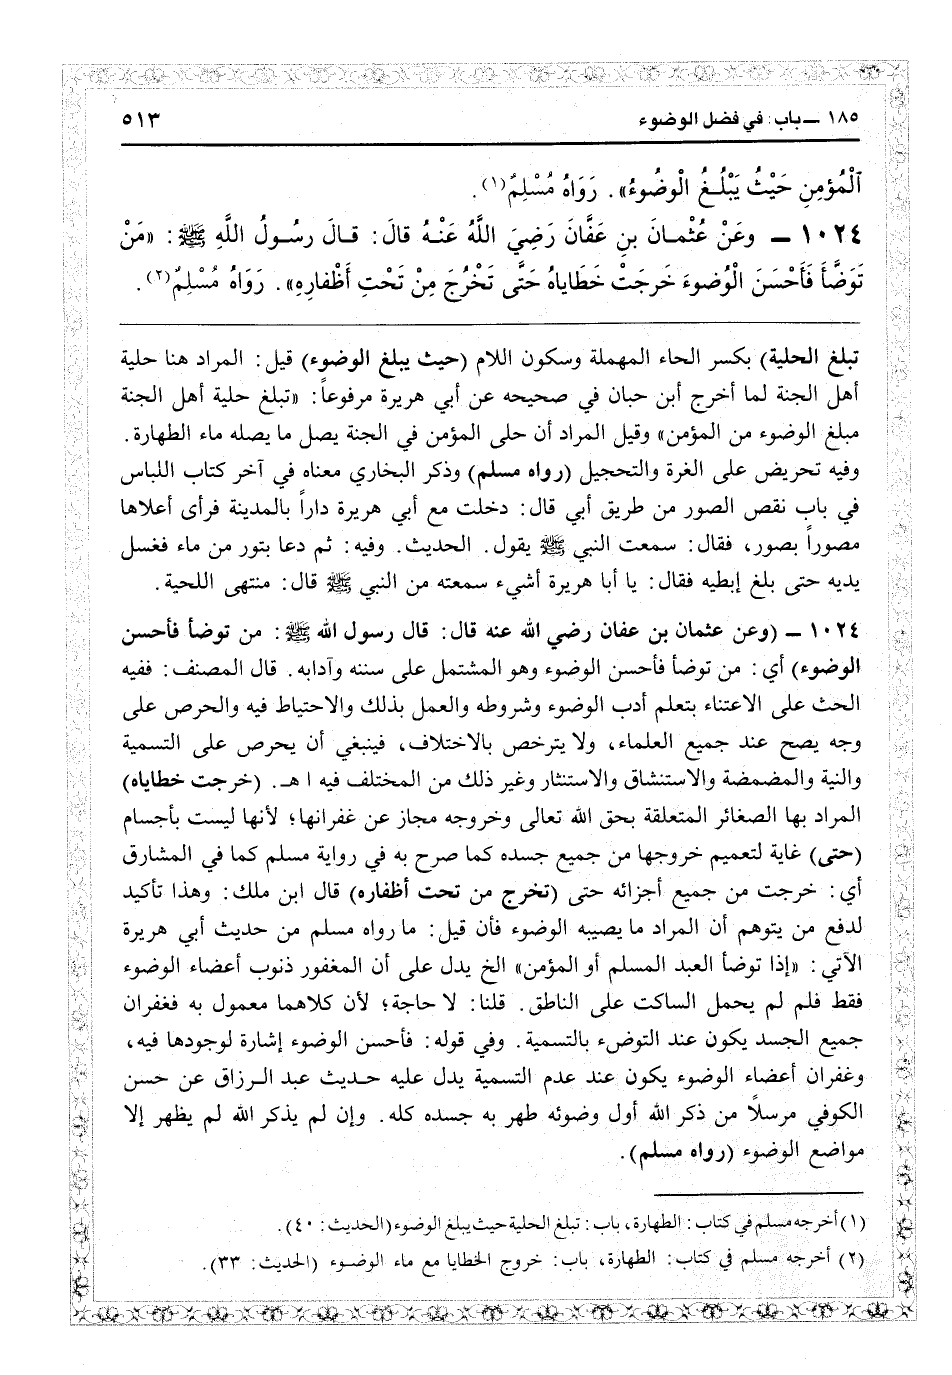 ١٨٥ ــ باب: في فضل الوضوء
٥١٣
ٱلْمُؤمِنِ حَيْثُ يَبْلُغُ الْوضُوءُ». رَوَاهُ مُسْلِمٌ(١).
١٠٢٤ ــ وعَنْ عُثْمـانَ بنِ عَفَّانَ رَضِيَ اللَّهُ عَنْـهُ قالَ: قـالَ رسُـولُ اللَّهِ ﷺ: «مَنْ
تَوَضَّأَ فَأَحْسَنَ الْوُضوءَ خَرجَتْ خَطاياهُ حَتَّى تَخْرُجَ مِنْ تَحْتِ أَظْفارِهِ». رَوَاهُ مُسْلِمٌ(٢).
تبلغ الحلية) بكسر الحاء المهملة وسكون اللام (حيث يبلغ الوضوء) قيل: المراد هنا حلية
أهل الجنة لما أخرج أبن حبان في صحيحه عن أبي هريرة مرفوعاً: «تبلغ حلية أهل الجنة
مبلغ الوضوء من المؤمن» وقيل المراد أن حلى المؤمن في الجنة يصل ما يصله ماء الطهارة.
وفيه تحريض على الغرة والتحجيل (رواه مسلم) وذكر البخاري معناه في آخر كتاب اللباس
في باب نقص الصور من طريق أبي قال: دخلت مع أبي هريرة داراً بالمدينة فرأى أعلاها
مصوراً بصور، فقال: سمعت النبي ﷺ يقول. الحديث. وفيه: ثم دعا بتور من ماء فغسل
يديه حتى بلغ إبطيه فقال: يا أبا هريرة أشيء سمعته من النبي ﷺ قال: منتهى اللحية.
١٠٢٤ ــ (وعن عثمان بن عفان رضي الله عنه قال: قال رسول الله ﷺ: من توضأ فأحسن
الوضوء) أي: من توضأ فأحسن الوضوء وهو المشتمل على سننه وآدابه. قال المصنف: ففيه
الحث على الاعتناء بتعلم أدب الوضوء وشروطه والعمل بذلك والاحتياط فيه والحرص على
وجه يصح عند جميع العلماء، ولا يترخص بالاختلاف، فينبغي أن يحرص على التسمية
والنية والمضمضة والاستنشاق والاستنثار وغير ذلك من المختلف فيه ا هـ. (خرجت خطاياه)
المراد بها الصغائر المتعلقة بحق الله تعالى وخروجه مجاز عن غفرانها؛ لأنها ليست بأجسام
(حتى) غاية لتعميم خروجها من جميع جسده كما صرح به في رواية مسلم كما في المشارق
أي: خرجت من جميع أجزائه حتى (تخرج من تحت أظفاره) قال ابن ملك: وهذا تأكيد
لدفع من يتوهم أن المراد ما يصيبه الوضوء فأن قيل: ما رواه مسلم من حديث أبي هريرة
الآتي: «إذا توضأ العبد المسلم أو المؤمن» الخ يدل على أن المغفور ذنوب أعضاء الوضوء
فقط فلم لم يحمل الساكت على الناطق. قلنا: لا حاجة؛ لأن كلاهما معمول به فغفران
جميع الجسد يكون عند التوضىء بالتسمية. وفي قوله: فأحسن الوضوء إشارة لوجودها فيه،
وغفران أعضاء الوضوء يكون عند عدم التسمية يدل عليه حديث عبد الرزاق عن حسن
الكوفي مرسلاً من ذكر الله أول وضوئه طهر به جسده كله. وإن لم يذكر الله لم يظهر إلا
مواضع الوضوء (رواه مسلم).
(١) أخرجه مسلم في كتاب: الطهارة، باب: تبلغ الحلية حيث يبلغ الوضوء (الحديث: ٤٠).
(٢) أخرجه مسلم في كتاب: الطهارة، باب: خروج الخطايا مع ماء الوضوء (الحديث: ٣٣).